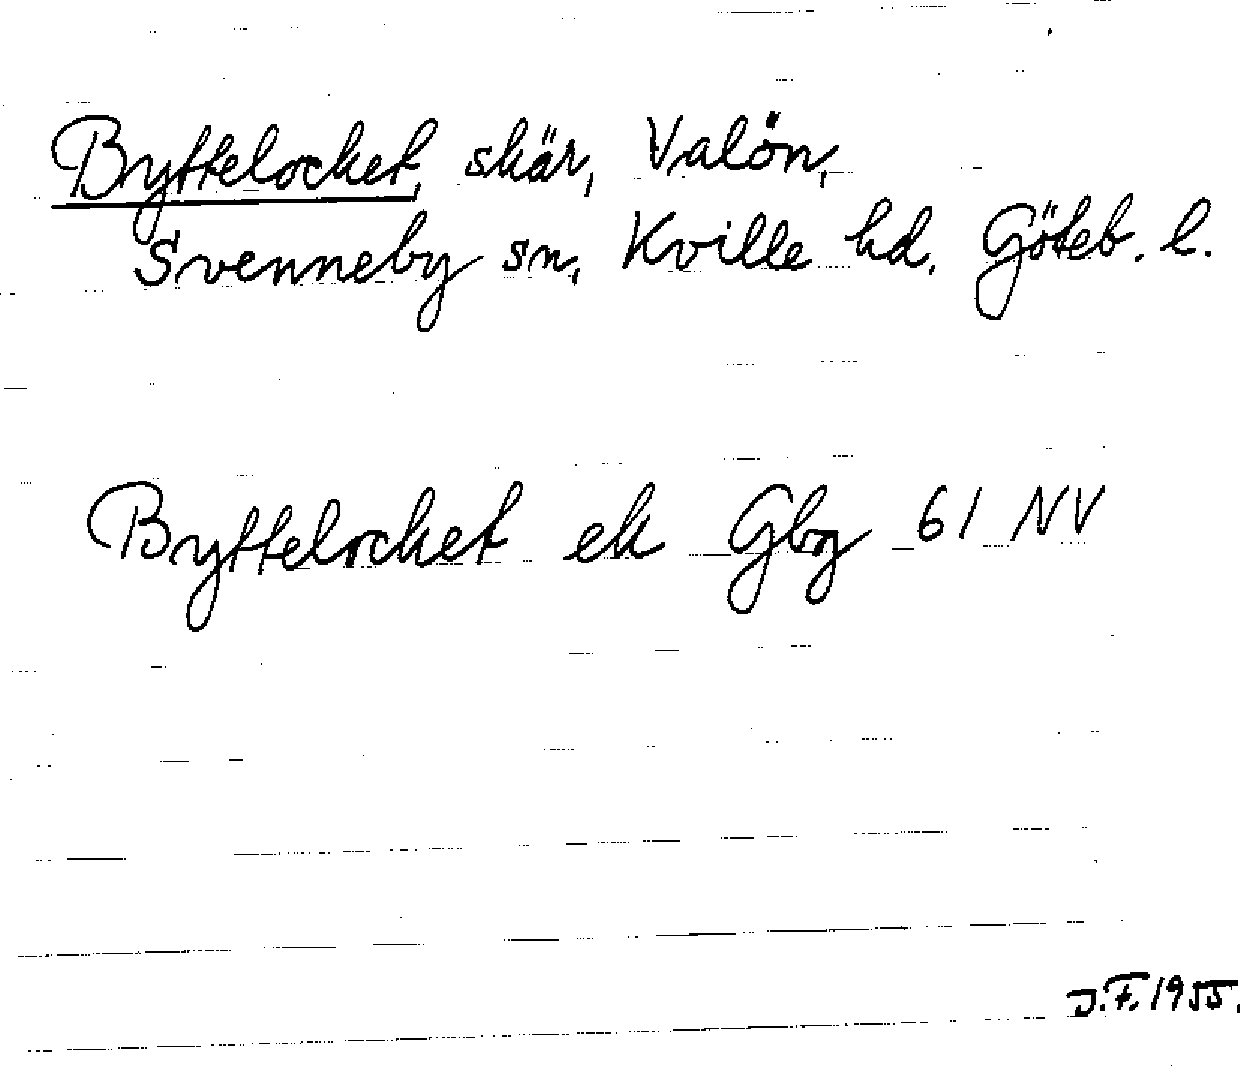 Byttelocket, skär, Valön,
Svenneby sn, Kville hd. Göteb. l.
Byttelocket ek Gbg 61 NV
J.F. 1955.